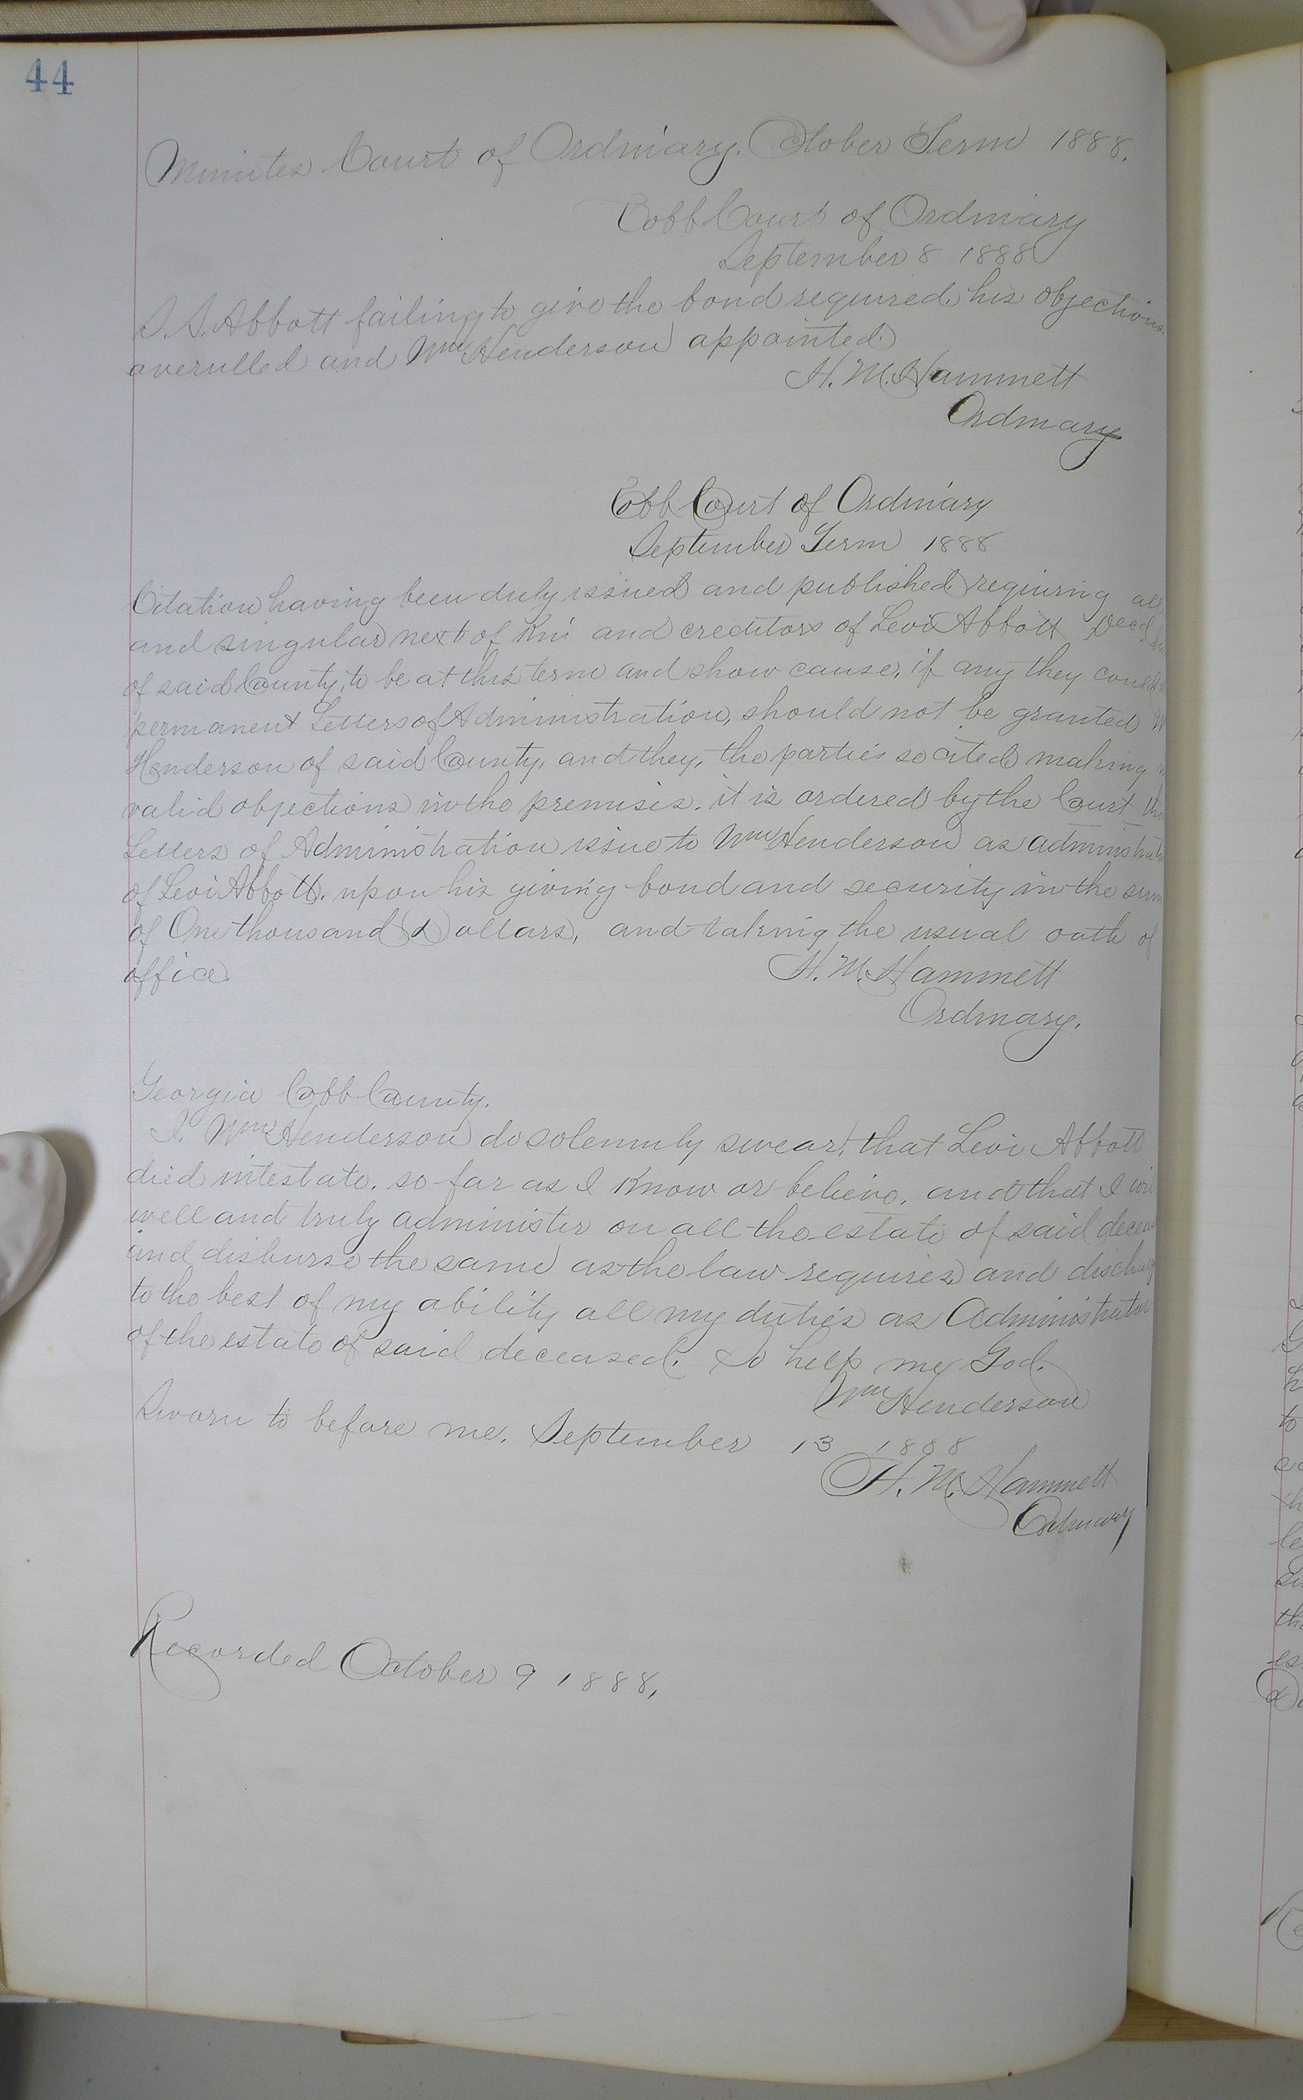 44
Minutes Court of Ordinary. October Term 1888.
Cobb Court of Ordinary
September 8 1888
S. S. Abbott failing to give the bond required, his objections
overulled and Wm Henderson appointed.
H. M. Hammett
Ordinary
Cobb Court of Ordinary
September Term 1888
Citation having been duly issued and published requiring all
and singular next of Kin and creditors of Levi Abbott Decd
of said County, to be at this term and show cause, if any they could
permanent Letters of Administration, should not be granted
Henderson of said County, and they, the parties so cited making
valid objections in the premises. it is ordered by the Court
Letters of Administration issue to Wm Henderson as administrator
of Levi Abbott. upon his giving bond and security in the sum
of One thousand Dollars, and taking the usual oath of
office.
H. M. Hammett
Ordinary.
Georgia Cobb County.
I. Wm Henderson do solemnly swear, that Levi Abbott
died intestate, so far as I Know or believe, and that I will
well and truly administer on all the estate of said
and disburse the same as the law requires, and
to the best of my ability all my duties as Administrator
of the estate of said deceased. So help me God.
Wm Henderson
Sworn to before me. September 13 1888
H. M. Hammett
Ordinary
Recorded October 9 1888,